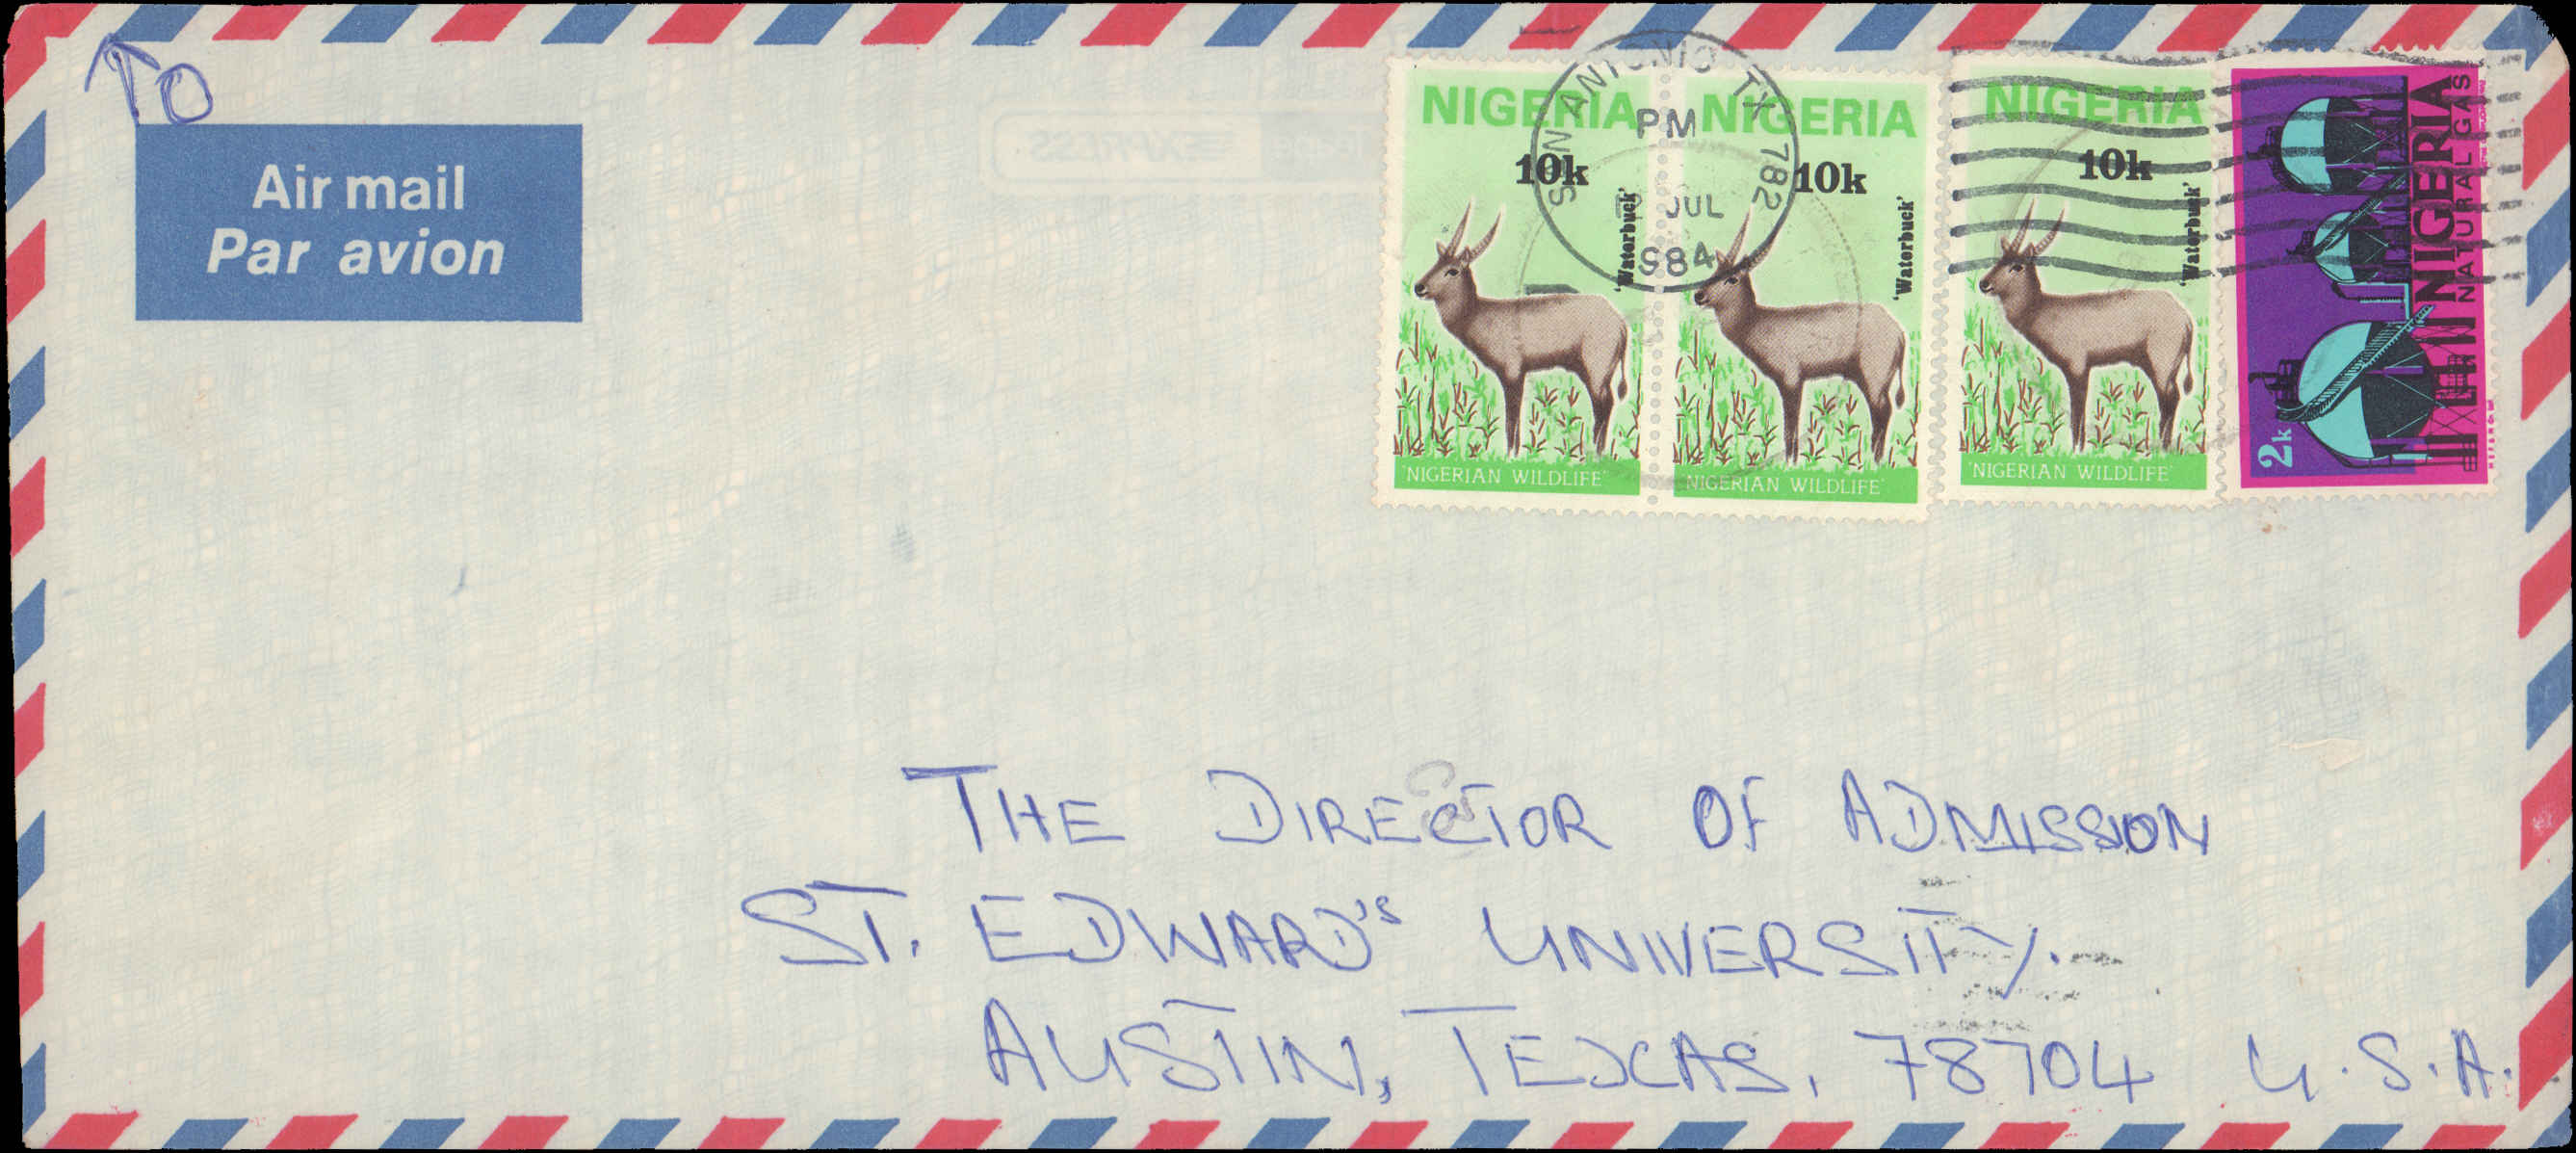 TO
Air mail
Par avion
NIGERIA
10k
'Waterbuck'
'NIGERIAN WILDLIFE'
NIGERIA
10k
'Waterbuck'
'NIGERIAN WILDLIFE'
NIGERIA
10k
'Waterbuck'
'NIGERIAN WILDLIFE'
NIGERIA
NATURAL GAS
2k
SAN ANTONIO TX 782
PM
JUL
1984
EXPRESS
THE DIRECTOR OF ADMISSION
ST. EDWARD'S UNIVERSITY.
AUSTIN, TEXAS. 78704 U.S.A.